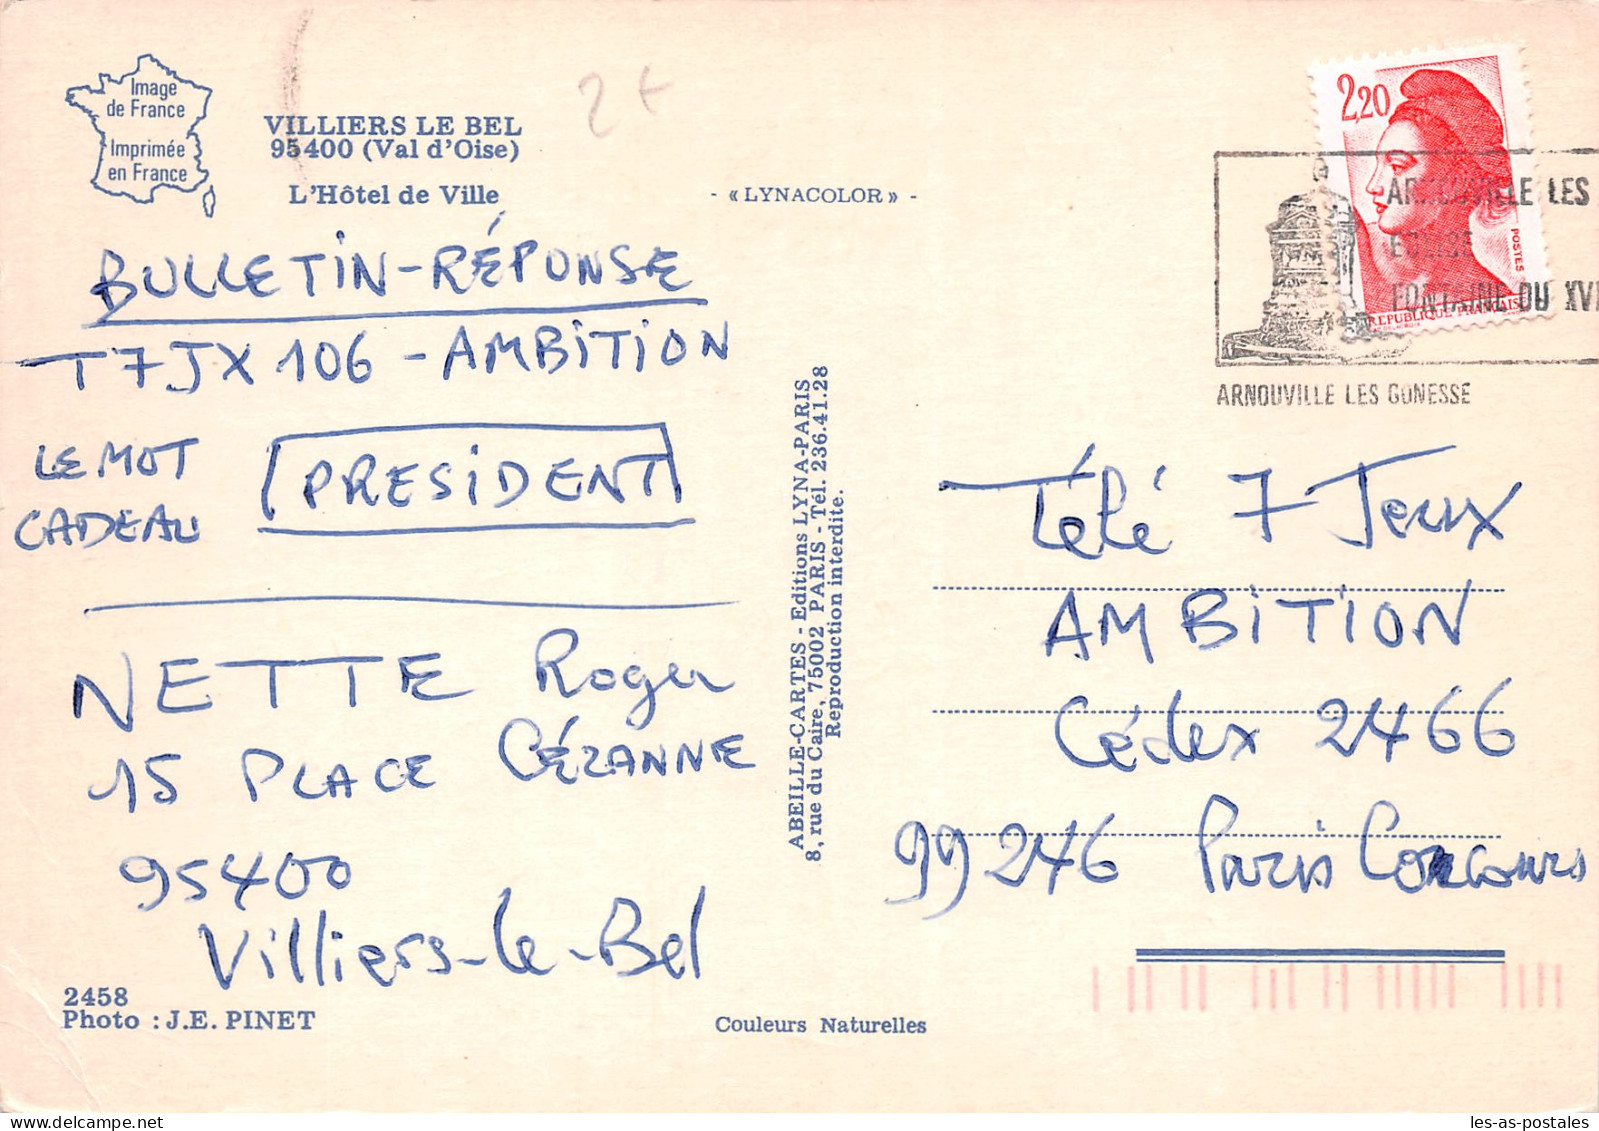 Image
de France
Imprimée
en France
VILLIERS LE BEL
95400 (Val d'Oise)
L'Hôtel de Ville
- «LYNACOLOR» -
2+
BULLETIN-RÉPONSE
T7JX 106 - AMBITION
LE MOT
CADEAU
PRESIDENT
NETTE Roger
15 PLACE CÉZANNE
95400
Villiers-le-Bel
2458
Photo : J.E. PINET
ABEILLE-CARTES - Editions LYNA-PARIS
8, rue du Caire, 75002 PARIS - Tél. 236.41.28
Reproduction interdite.
Couleurs Naturelles
2,20
POSTES
REPUBLIQUE FRANÇAISE
ARNOUVILLE LES
EGLISE
FONTAINE DU XVI
ARNOUVILLE LES GONESSE
Télé 7 Jeux
AMBITION
Cédex 2466
99246 Paris Concours
les-as-postales